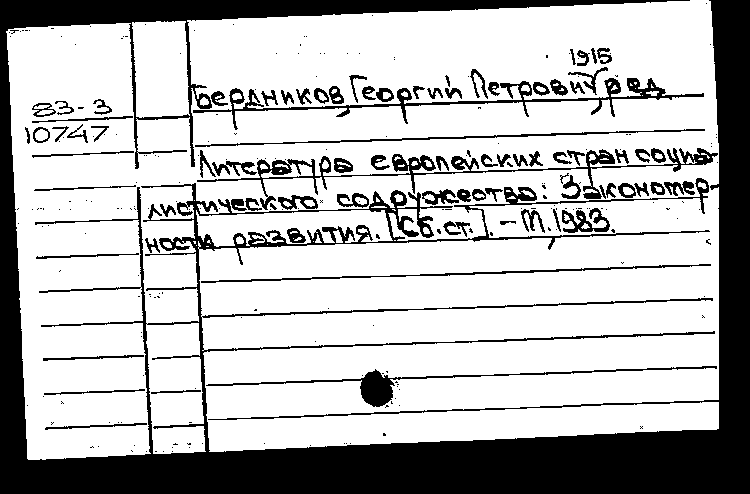 1915
Бердников, Георгий Петрович, ред.
83-3
10747
Литература европейских стран социа-
листического содружества: Закономер-
ности развития. [Сб. ст.]. – М., 1983.